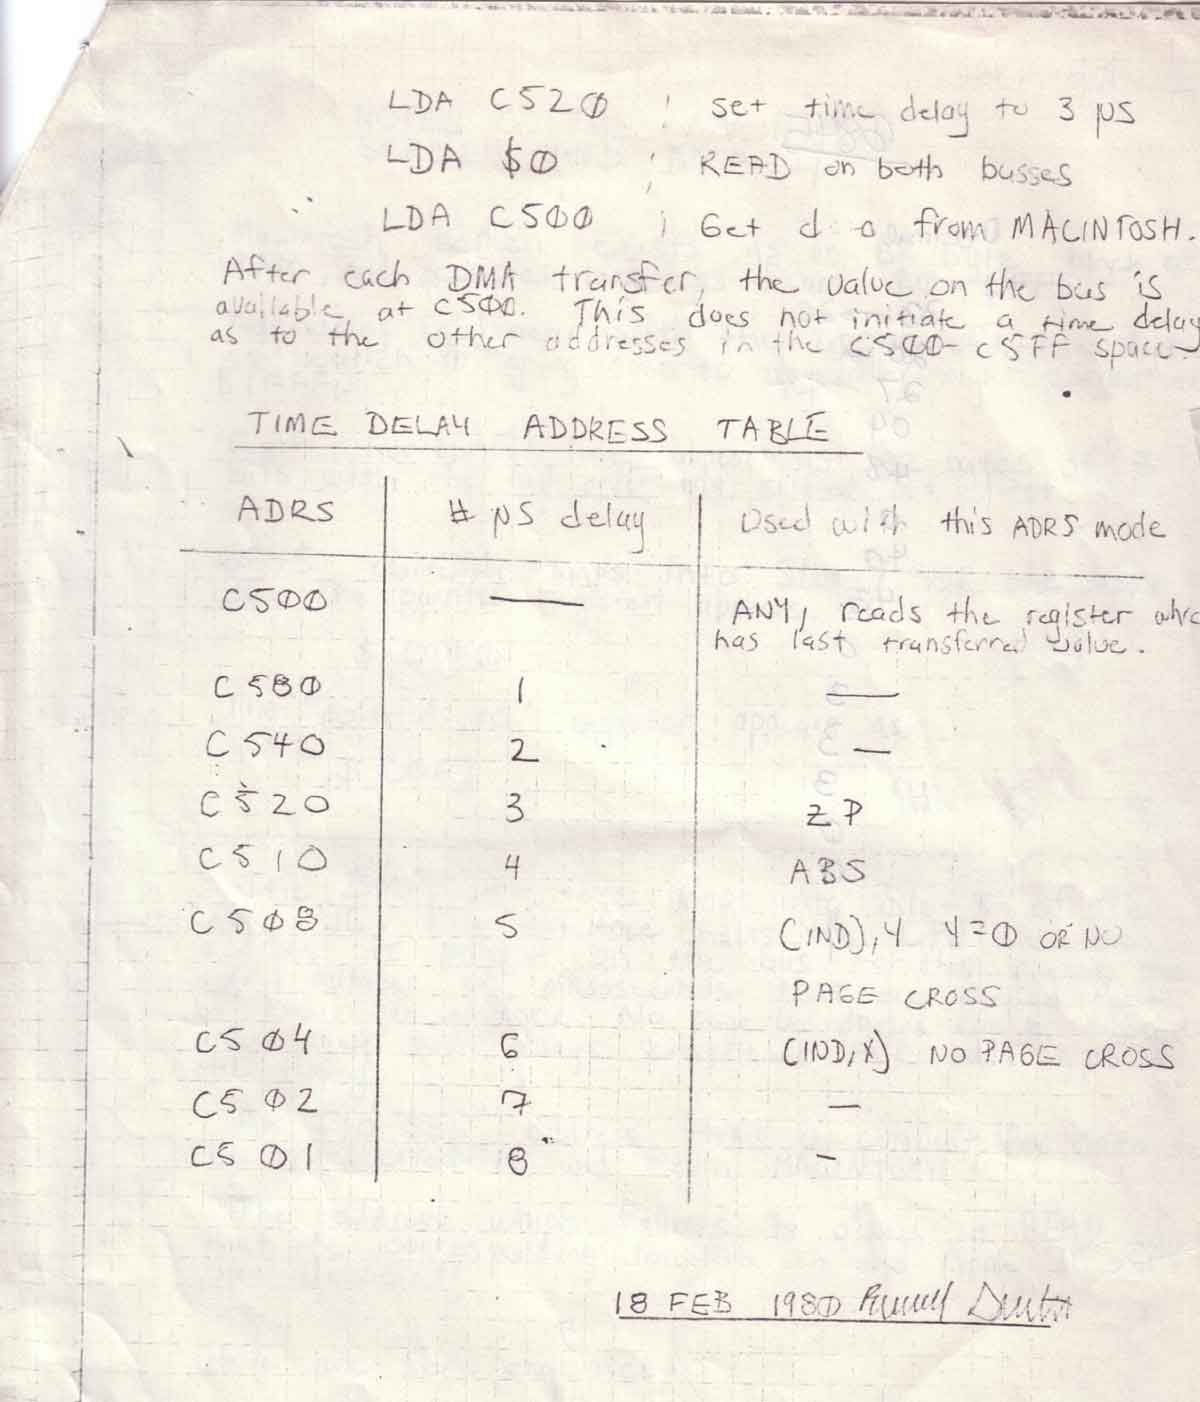 LDA C520 ; set time delay to 3 µS
LDA $0 ; READ on both busses
LDA C500 ; Get d a from MACINTOSH.
After each DMA transfer, the value on the bus is
available at C500. This does not initiate a time delay
as to the other addresses in the C500-C5FF space.
TIME DELAY ADDRESS TABLE
ADRS # µS delay Used with this ADRS mode
C500 — ANY, reads the register whic
has last transferred value.
C580 1 —
C540 2 —
C520 3 ZP
C510 4 ABS
C508 5 (IND),Y Y=0 OR NO
PAGE CROSS
C504 6 (IND,X) NO PAGE CROSS
C502 7 —
C501 8 -
18 FEB 1980